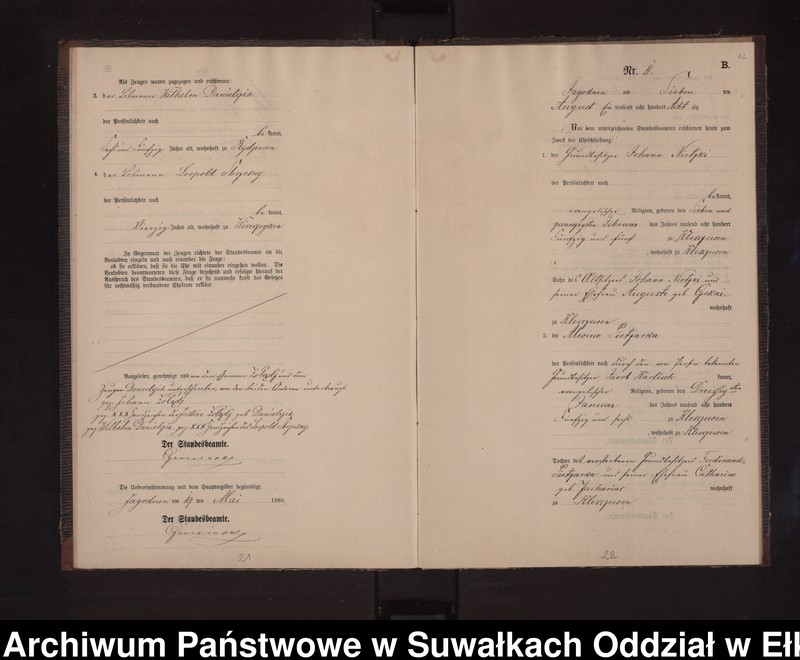 Als Zeugen waren zugezogen und erschienen:
3. der Lohmann Wilhelm Danielzik
der Persönlichkeit nach
be kannt,
sechs und fünfzig Jahre alt, wohnhaft zu
4. der Lohmann Leopold
der Persönlichkeit nach
be kannt,
vierzig Jahre alt, wohnhaft zu
In Gegenwart der Zeugen richtete der Standesbeamte an die
Verlobten einzeln und nach einander die Frage:
ob sie erklären, daß sie die Ehe mit einander eingehen wollen. Die
Verlobten beantworteten diese Frage bejahend und erfolgte hierauf der
Ausspruch des Standesbeamten, daß er sie nunmehr kraft des Gesetzes
für rechtmäßig verbundene Eheleute erkläre.
Vorgelesen, genehmigt und von dem
Zeugen Danielzik unterschrieben, von den beiden Anderen unterkreuzt
gez. Johann
gez. XXX Handzeichen der geb. Danielzik
gez. Wilhelm Danielzik, gez. XXX Handzeichen des Leopold
Der Standesbeamte.
Die Uebereinstimmung mit dem Hauptregister beglaubigt.
Jagodnen am 19 ten Mai 1880.
Der Standesbeamte.
21
B.
Nr. 11.
Jagodnen am Sieben ten
August Ein tausend acht hundert Acht zig
Vor dem unterzeichneten Standesbeamten erschienen heute zum
Zweck der Eheschließung:
1. der Grundbesitzer Johann
der Persönlichkeit nach
be kannt,
evangelischer Religion, geboren den Sieben und
zwanzigsten Februar des Jahres tausend acht hundert
fünfzig und fünf zu Kleszewen
, wohnhaft zu Kleszewen
Sohn des Altsitzers Johann und
seiner Ehefrau Auguste geb.
wohnhaft
zu Kleszewen
2. die Pietzarka
der Persönlichkeit nach durch den von Person bekannten
Grundbesitzer Jacob kannt,
evangelischer Religion, geboren den Dreißig sten
Januar des Jahres tausend acht hundert
fünfzig und sechs zu Kleszewen
, wohnhaft zu Kleszewen
Tochter des verstorbenen Grundbesitzers Ferdinand
Pietzarka und seiner Ehefrau Catharine
geb. Zacharias wohnhaft
zu Kleszewen
22
Archiwum Państwowe w Suwałkach Oddział w Ełk